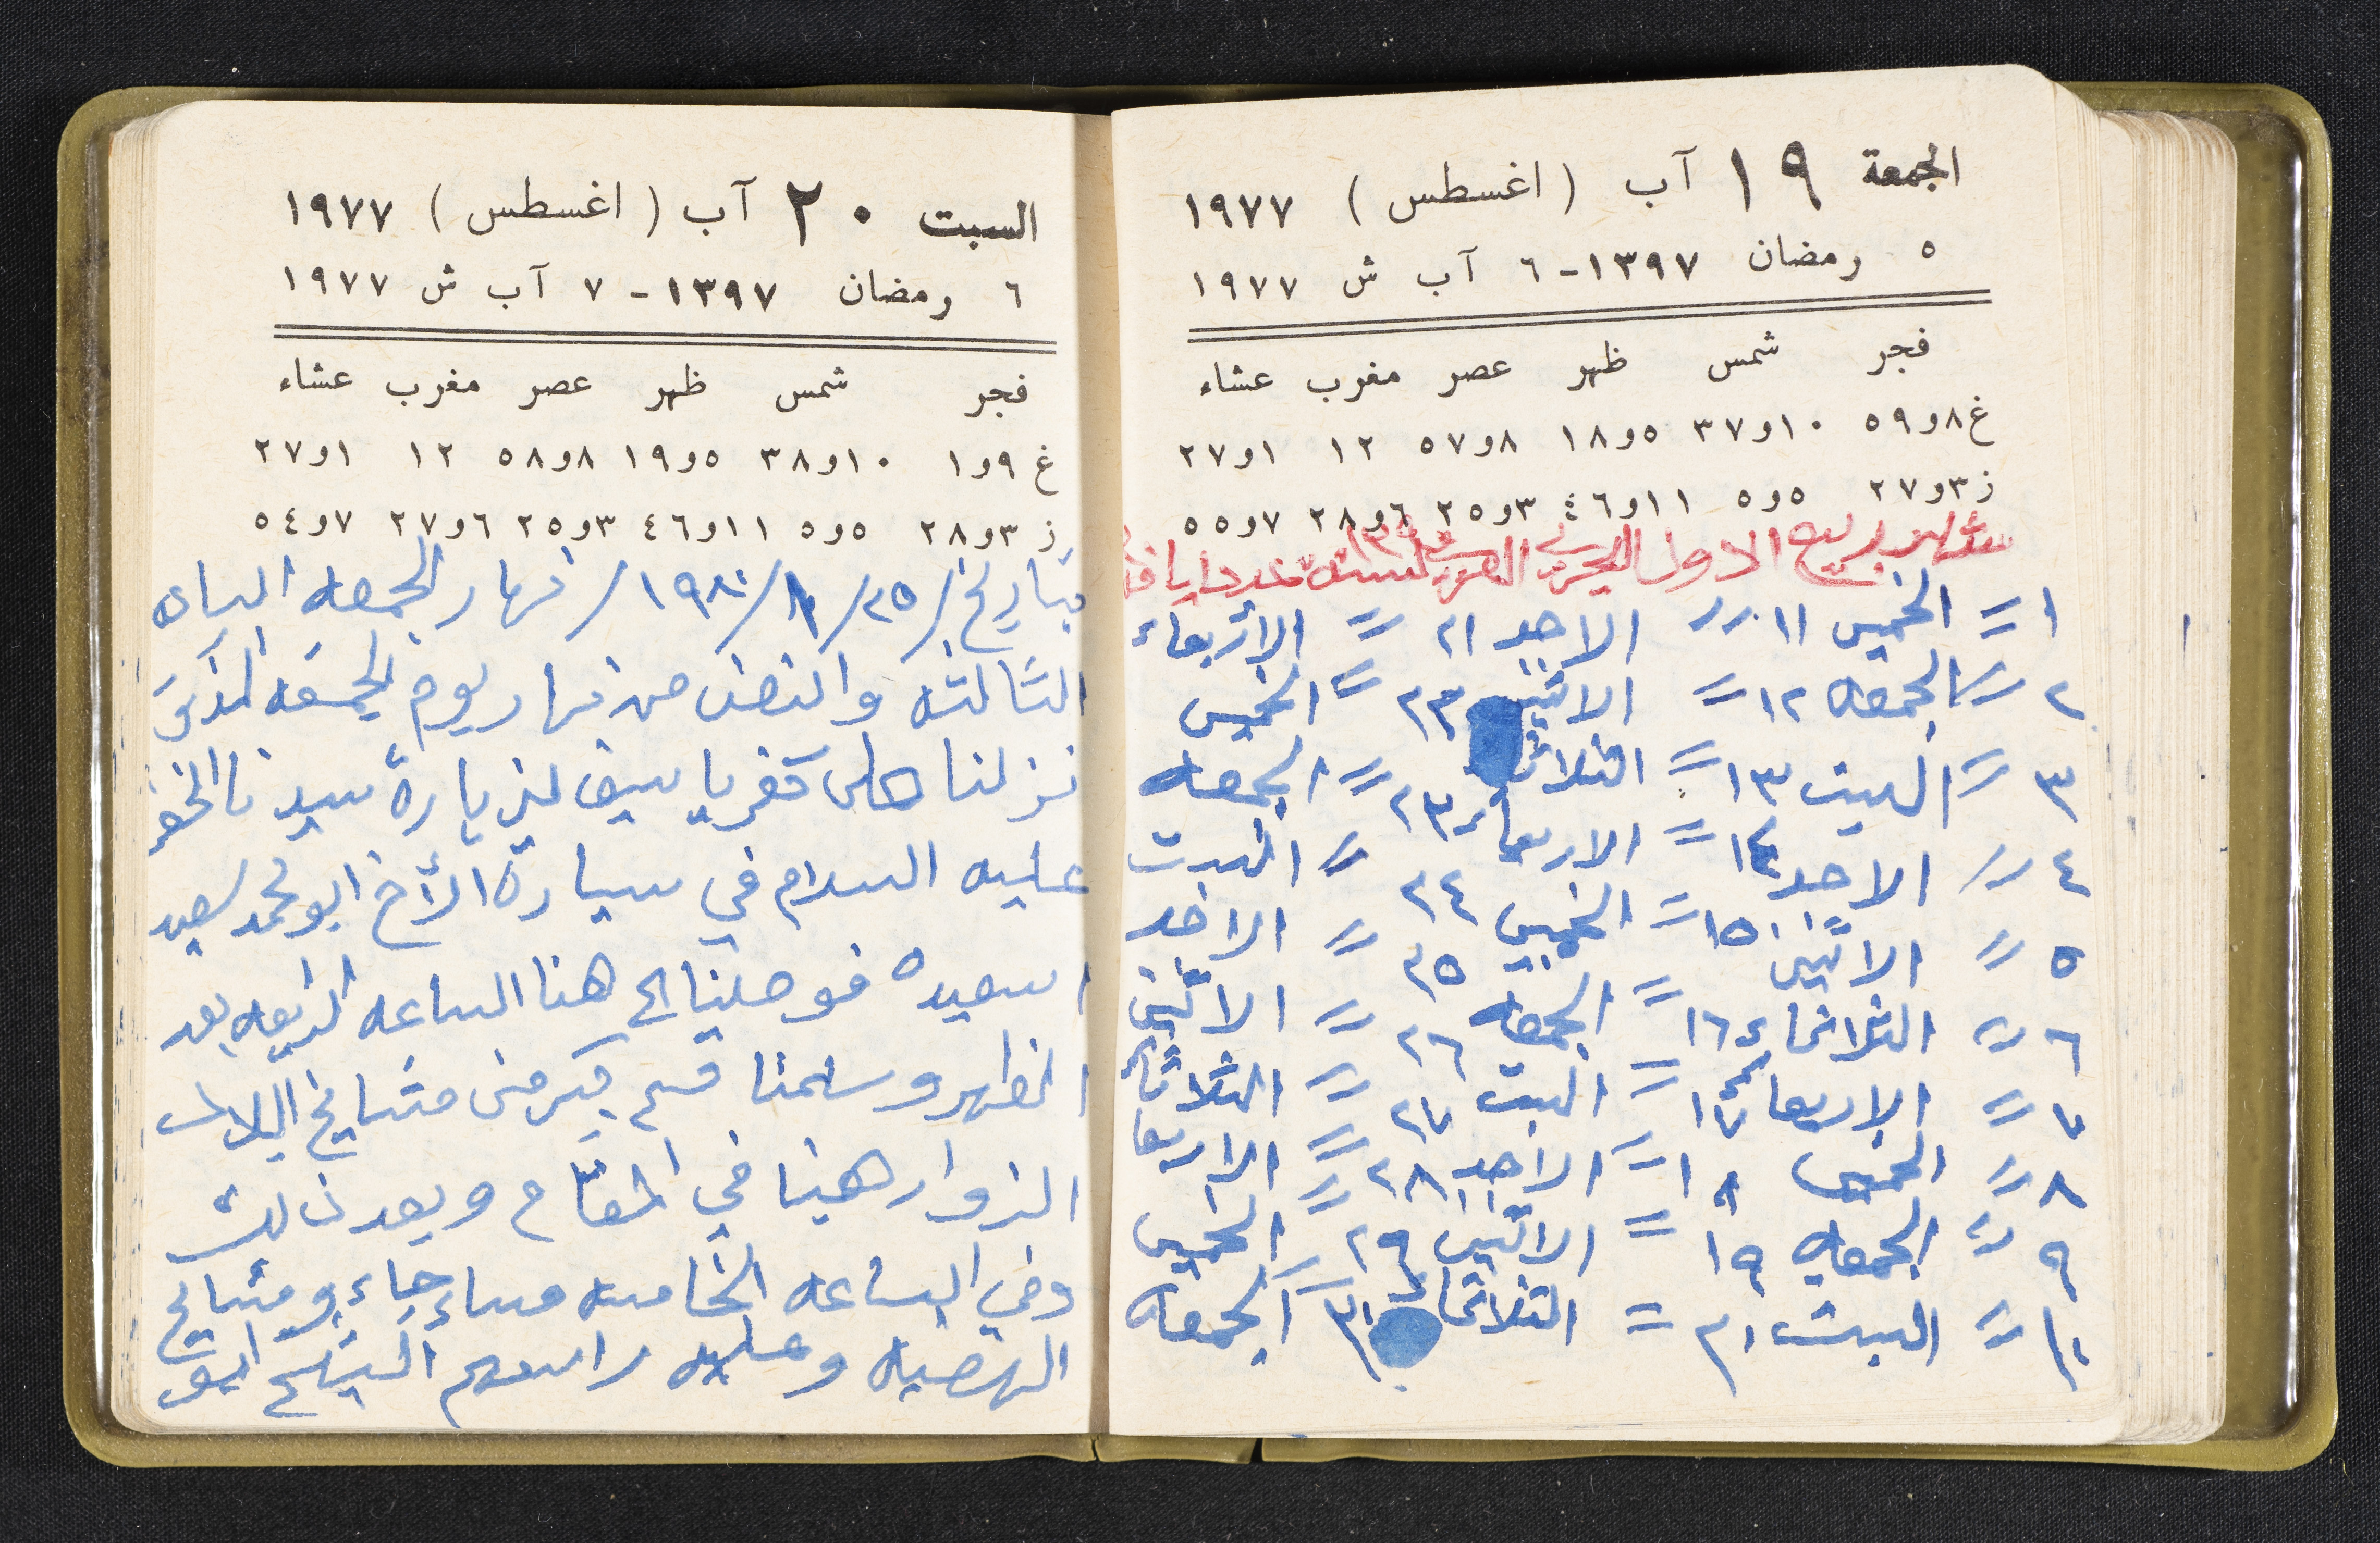 الجمعة ١٩ آب (اغسطس) ١٩٧٧
٥ رمضان ١٣٩٧ - ٦ آب ش ١٩٧٧
فجر شمس ظهر عصر مغرب عشاء
غ ٨و٥٩ ١٠و٣٧ ٥و١٨ ٨و٥٧ ١٢ ١و٢٧
ز ٣و٢٧ ٥و٥ ١١و٤٦ ٣و٢٥ ٦و٢٨ ٧و٥٥
شهر ربيع الاول
١ = الخميس ١١ = الاحد ٢١ = الأربعاء
٢ = الجمعه ١٢ = الاثنين ٢٢ = الخميس
٣ = السبت ١٣ = الثلاثاء ٢٣ = الجمعه
٤ = الاحد ١٤ = الاربعاء ٢٤ = السبت
٥ = الاثنين ١٥ = الخميس ٢٥ = الاحد
٦ = الثلاثاء ١٦ = الجمعه ٢٦ = الاثنين
٧ = الاربعاء ١٧ = السبت ٢٧ = الثلاثاء
٨ = الخميس ١٨ = الاحد ٢٨ = الاربعا
٩ = الجمعه ١٩ = الاثنين ٢٩ = الخميس
١٠ = السبت ٢٠ = الثلاثاء ٣٠ = الجمعه
السبت ٢٠ آب (اغسطس) ١٩٧٧
٦ رمضان ١٣٩٧ - ٧ آب ش ١٩٧٧
فجر شمس ظهر عصر مغرب عشاء
غ ٩و١ ١٠و٣٨ ٥و١٩ ٨و٥٨ ١٢ ١و٢٧
ز ٣و٢٨ ٥و٥ ١١و٤٦ ٣و٢٥ ٦و٢٧ ٧و٥٤
بتاريخ / ٢٥ / ١ / ١٩٨٠ / نهار الجمعه الساعه
الثالثه والنصف من نهار يوم الجمعه
نزلنا على كفرياسيف لزيارة سيدنا الخضر
عليه السلام في سيارة الأخ ابو محمد سعيد
اسعيده فوصلنا الى هنا الساعه الرابعه بعد
الظهر وسلمنا قسم كبير من مشايخ البلاد
الزوار هنا في المقام وبعد ذلك
وفي الساعه الخامسه مساء جاءو مشايخ
وعلى راسهم الشيخ ابو